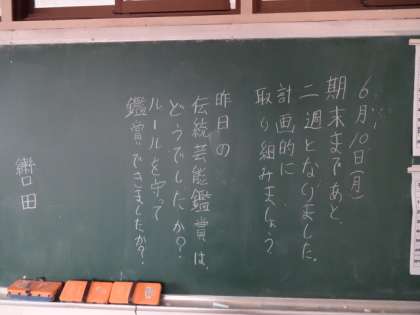 6月10日(月)
期末まであと、
二週となりました。
計画的に
取り組みましょう
昨日の
伝統芸能鑑賞は、
どうでしたか?
ルールを守って
鑑賞できましたか?
轡田